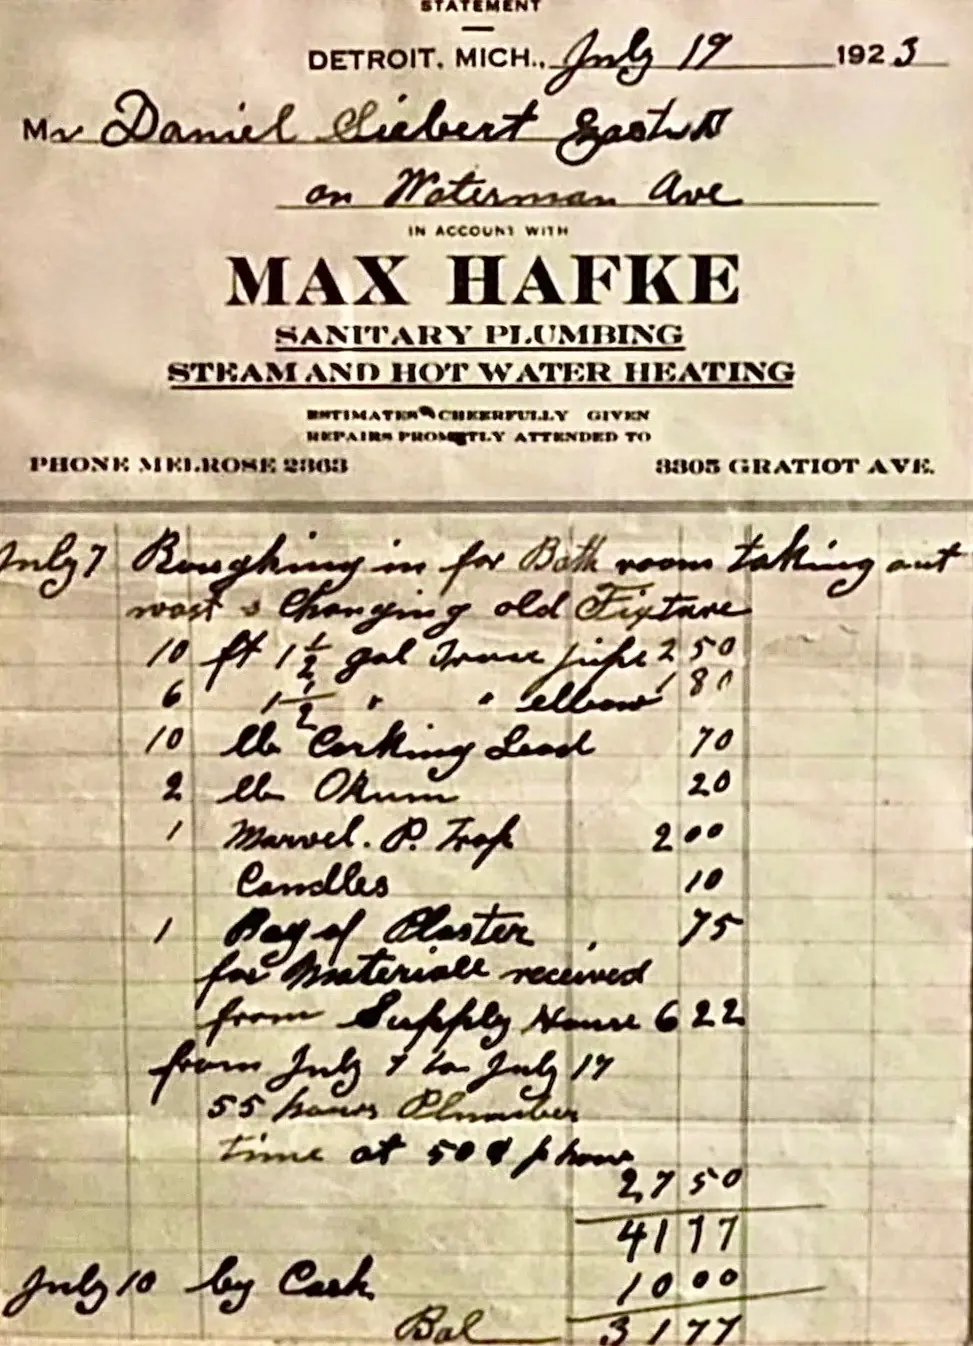 STATEMENT
DETROIT, MICH., July 19 1923
Mr Daniel Siebert
on Waterman Ave
IN ACCOUNT WITH
MAX HAFKE
SANITARY PLUMBING
STEAM AND HOT WATER HEATING
ESTIMATES CHEERFULLY GIVEN
REPAIRS PROMPTLY ATTENDED TO
PHONE MELROSE 2363 3305 GRATIOT AVE.
July 7 Roughing in for Bath room taking out
wast & Changing old Fixture
10 ft 1 1/2 gal pipe 2 50
6 1 1/2 " " elbow 1 80
10 lb Corking Lead 70
2 lb Okum 20
1 Marvel. P. Trap 2 00
Candles 10
1 Bag of Plaster 75
for Materiall received
from Supply House 6 22
from July 7 to July 17
55 hours Plumber
time at 50 ¢ p hour
27 50
41 77
July 10 by Cash 10 00
Bal 31 77